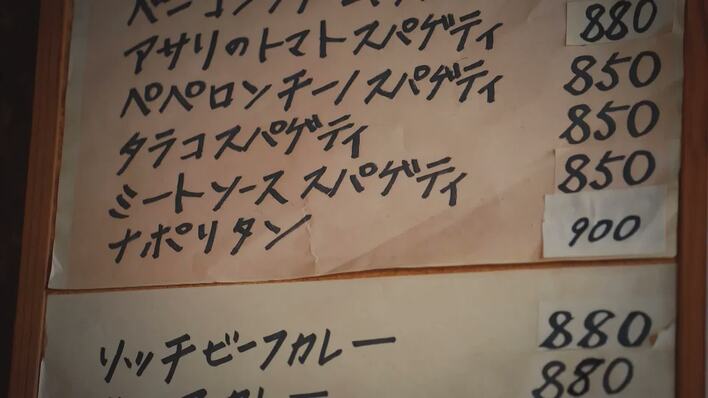 アサリのトマトスパゲティ 880
ペペロンチーノスパゲティ 850
タラコスパゲティ 850
ミートソーススパゲティ 850
ナポリタン 900
リッチビーフカレー 880
カレー 880